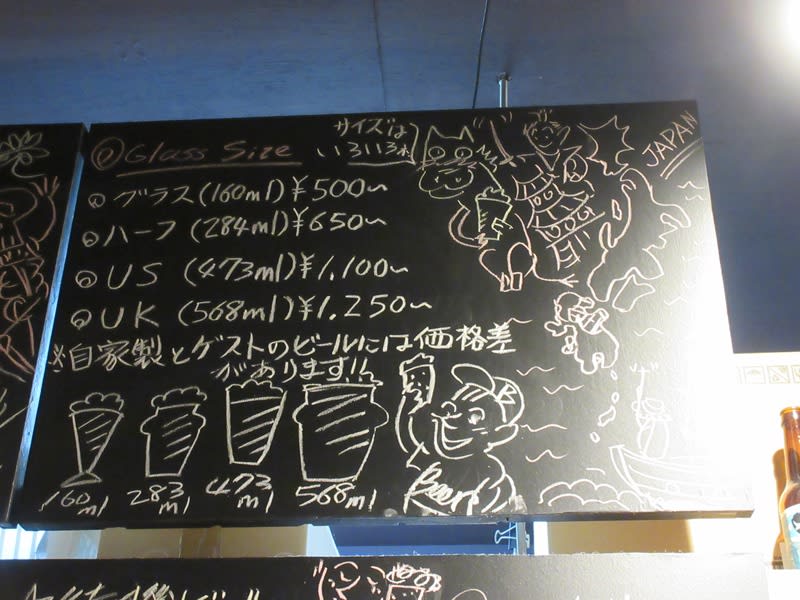 Glass Size
サイズは
いろいろ
グラス(160ml)¥500~
ハーフ(284ml)¥650~
US (473ml)¥1,100~
UK (568ml)¥1,250~
※自家製とゲストのビールには価格差
があります!!
160ml
283ml
473ml
568ml
Beer!
JAPAN